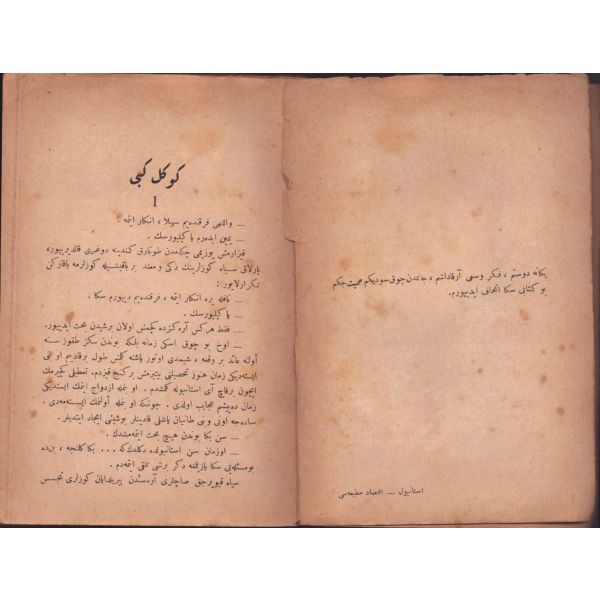 یگانه دوستم ، فکر وسعی آرقاداشم ، جانمدن چوق سودیکم حکمت
بو کتابی سکا اتحاف ایدییورم.
استانبول — اقتصاد مطبعه‌سی
کوکل کبی
1
— واللهی فرقنده‌یم سهیلا ، انکار ایتمه .
— یمین ایده‌رم یا کیلیورسك .
قیزارمش یوزیمی چکه‌مدن طوتارق کندینه دوغری قالدیرییور،
پارلاق سیاه کوزلرینك ذکی و معند بر باقیشیله کوزلرمه باقارکن
تکرارلایور :
— نافله یره انکار ایتمه ، فرقنده‌یم دییورم سکا .
— یا کیلیورسك .
— فقط هرکس آره‌کزده کچمش اولان برشیدن بحث ایدییور.
— اوخ بو چوق اسکی زمانه بلکه بوندن سکز طقوز سنه
اولنه عائد بر وقعه ، شیمدی اوتوز یاشنه کلمش طول برقادیم او بی
ایسته‌دیکی زمان هنوز تحصیلنی بیتیرمش برکنج قیزدم. تعطیلی کچیرمك
ایچون برقاچ آی استانبوله کلمشدم . او بنمله ازدواج ایتمك ایستدیکی
زمان ده‌یشیم عجایب اولدی . چونکه او بنمله اولنمك ایسته‌مه‌دی .
ساده‌جه اونی وبنی طانیان یاشلی قادینلر بوشیئی ایجاد ایتدیلر .
— سن بکا بوندن هیچ بحث ایتمه‌مشدك .
— اوزمان سن استانبولده دکلدك که ... بکا کلنجه ، بن‌ده
بومسئله‌یی سکا یازمغه دکر برشی تلقی ایتمه‌دم .
سیاه قیویرجق صاچلری آره‌سندن پیریلدایان کوزلری تجسس